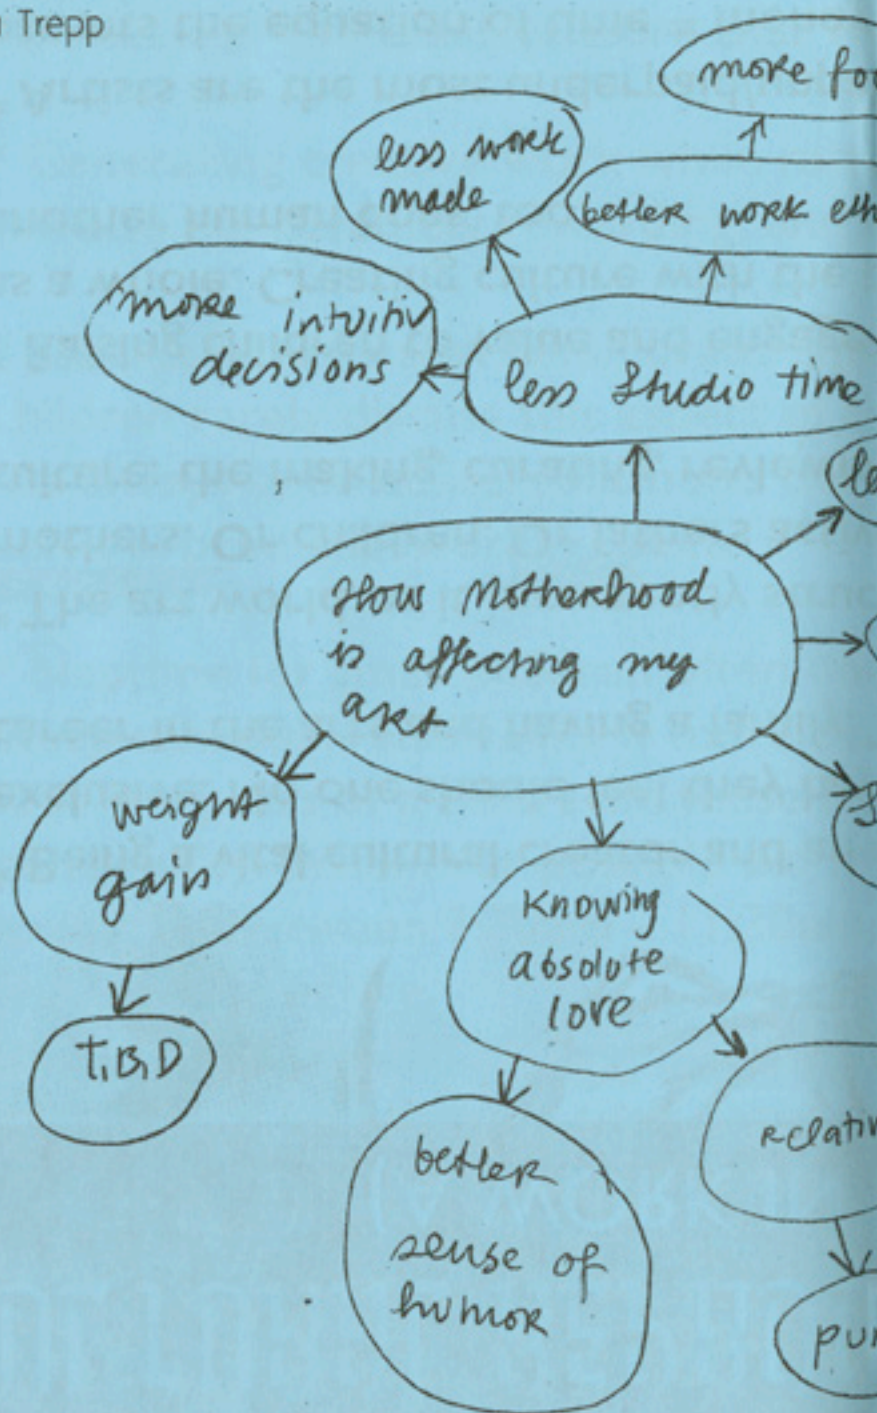 Trepp
more
less work
made
better work
more intuitiv
decisions
less Studio time
How Motherhood
is affecting my
art
weight
gain
Knowing
absolute
love
T.B.D
better
sense of
humor